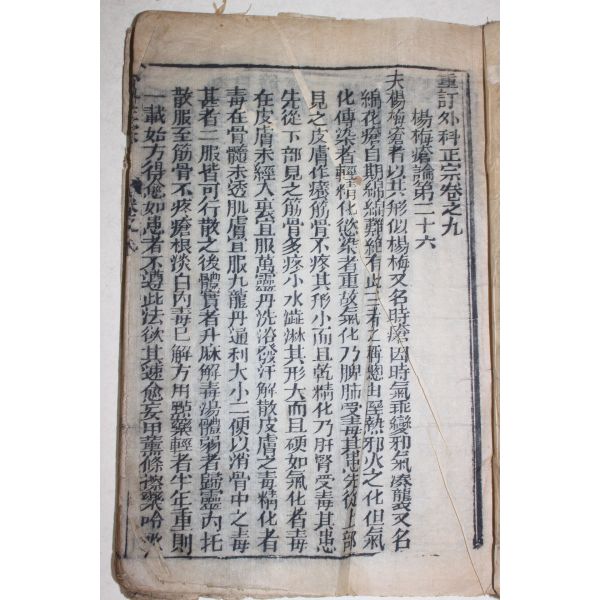 重訂外科正宗卷之九
楊梅瘡論第二十六
夫楊梅瘡者以其形似楊梅又名時瘡因時氣乖變邪氣湊襲又名
綿花瘡自期綿綿難絕有此三者之稱總由濕熱邪火之化但氣
化傳染者輕精化慾染者重故氣化乃脾肺受毒其患先從上部
見之皮膚作癢筋骨不疼其形小而且乾精化乃肝腎受毒其患
先從下部見之筋骨多疼小水澁淋其形大而且硬如氣化者毒
在皮膚未經入裏且服萬靈丹洗浴發汗解散皮膚之毒精化者
毒在骨髓未透肌膚且服九龍丹通利大小二便以消骨中之毒
甚者二服皆可行散之後體實者升麻解毒湯體弱者歸靈內托
散服至筋骨不疼瘡根淡白內毒已解方用點藥輕者半年重則
一載始方得愈如患者不遵此法欲其速愈妄用薰條擦藥哈